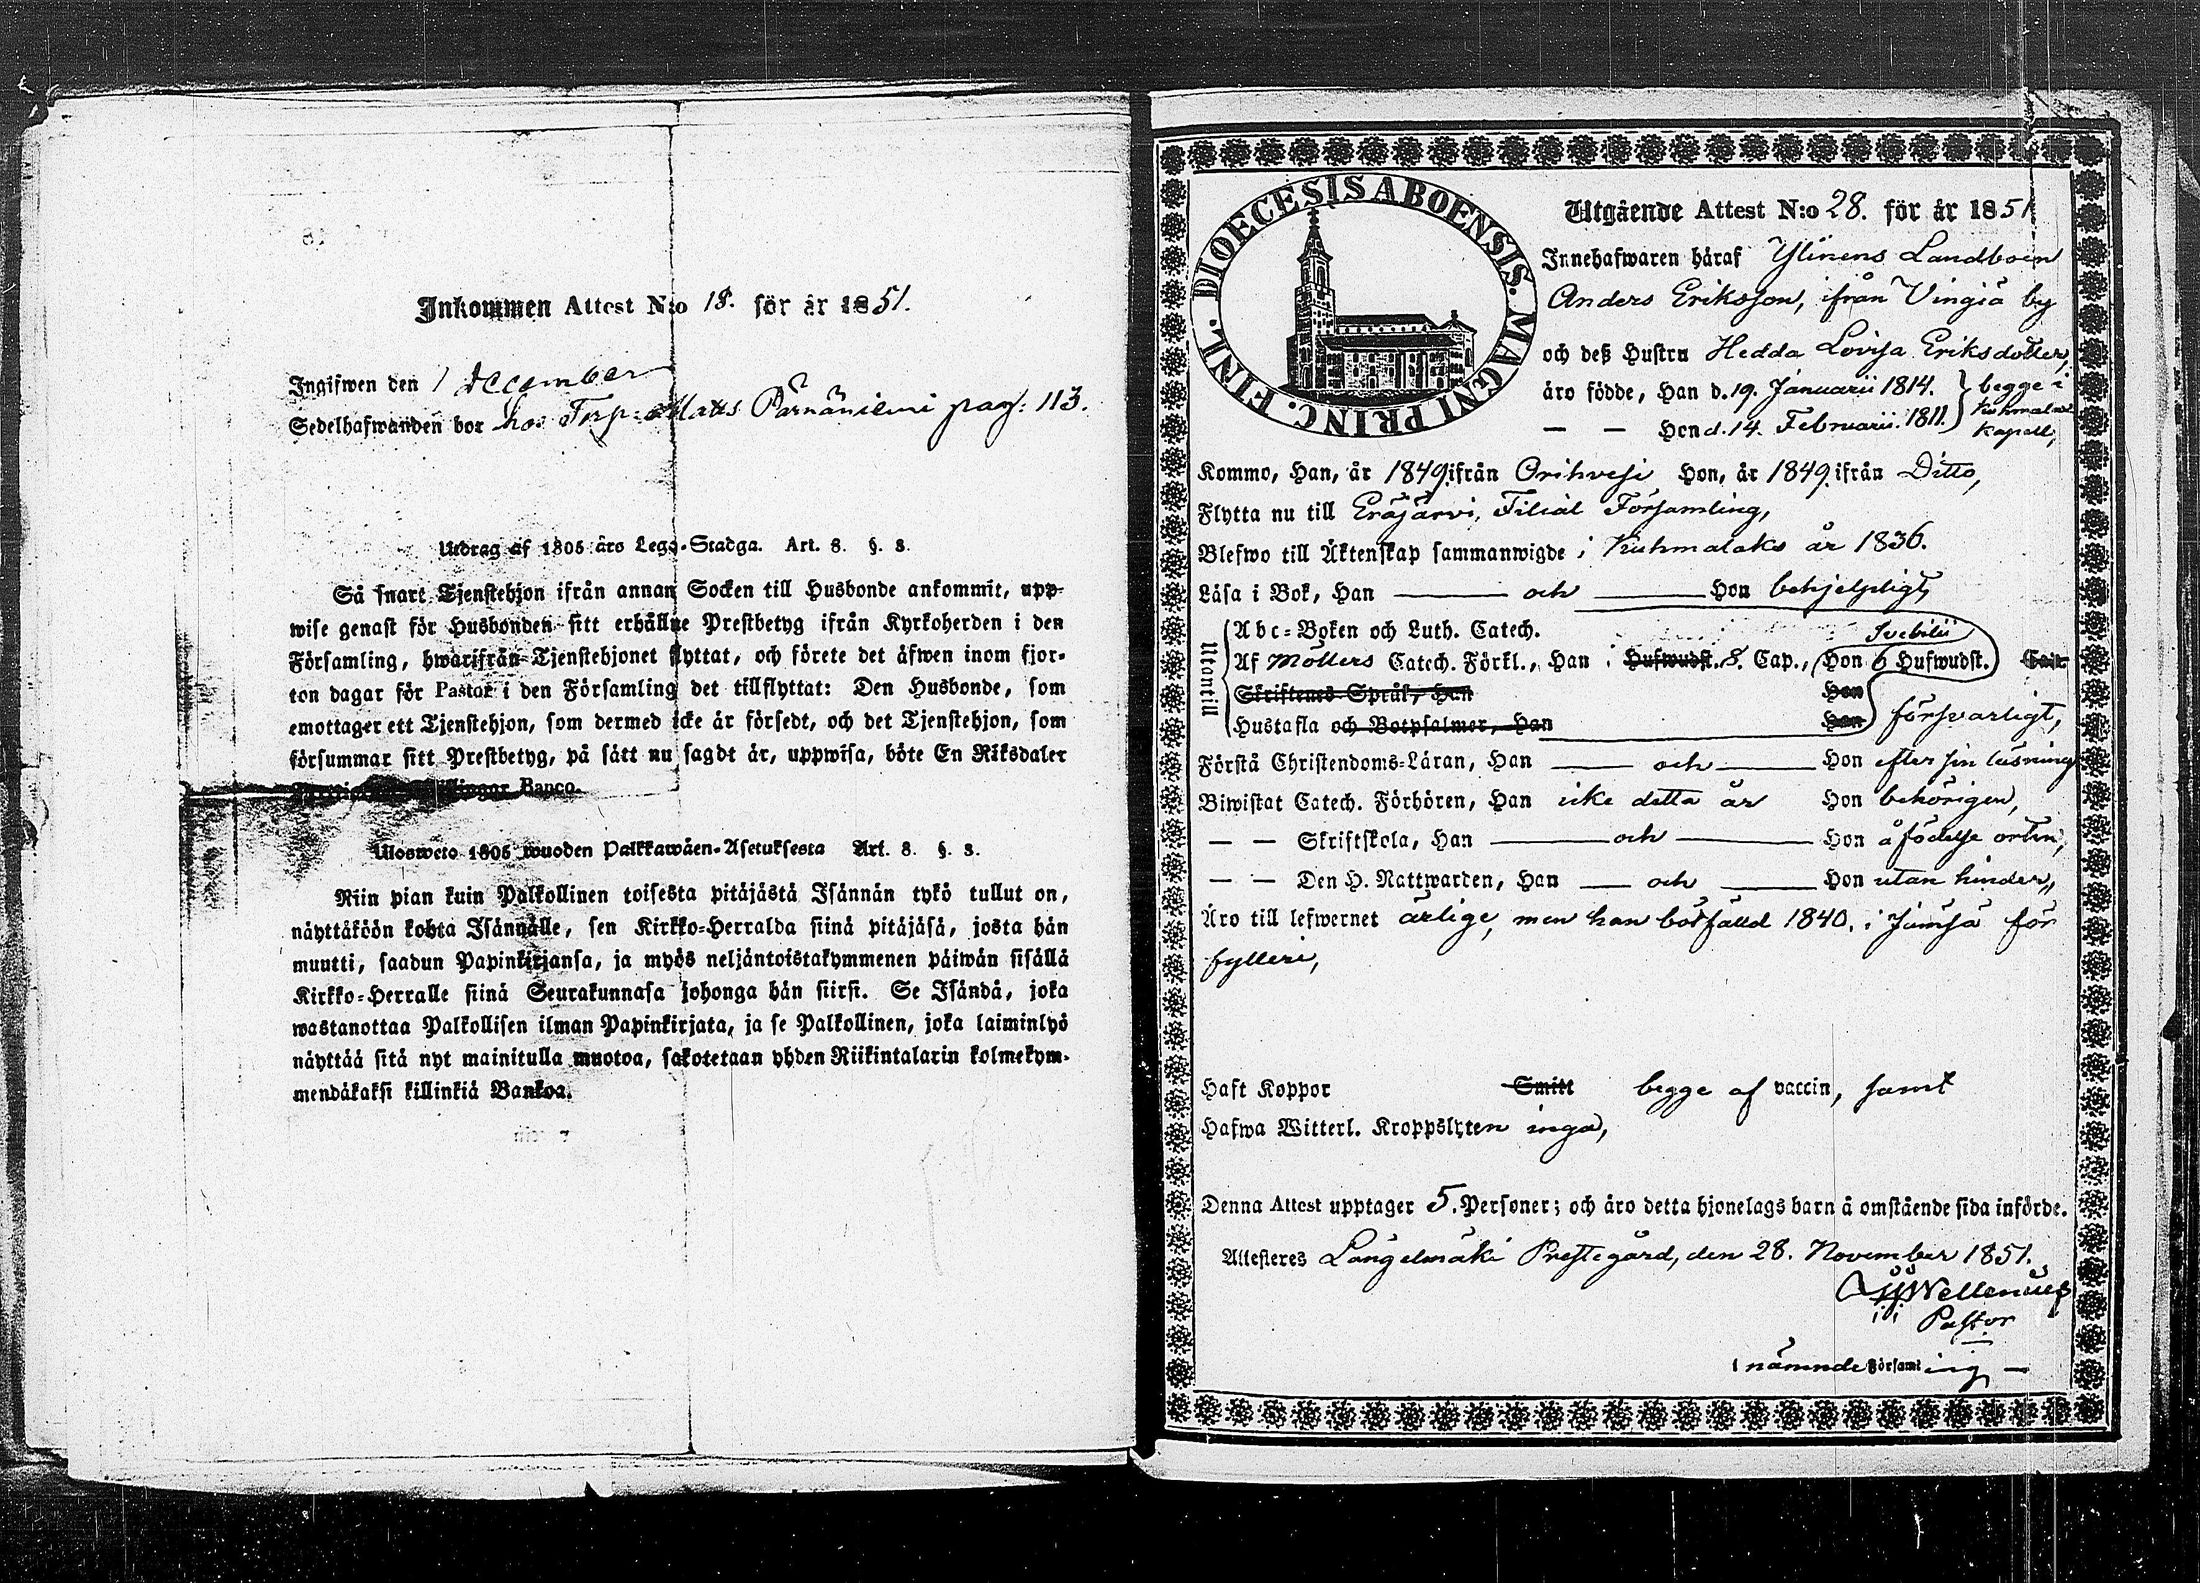 Inkommen Attest N:o 18. för år 1851.
Ingifwen den 1 December
Sedelhafwanden bor hos Torp: Matts Pärnäniemi pag: 113.
Utdrag af 1805 års Lego-Stadga. Art. 8. §. 8.
Så snart Tjenstehjon ifrån annan Socken till Husbonde ankommit, upp-
wise genast för Husbonden sitt erhållne Prestbetyg ifrån Kyrkoherden i den
Församling, hwarifrån Tjenstehjonet flyttat, och förete det äfwen inom fjor-
ton dagar för Pastor i den Församling det tillflyttat: Den Husbonde, som
emottager ett Tjenstehjon, som dermed icke är försedt, och det Tjenstehjon, som
försummar sitt Prestbetyg, på sätt nu sagdt är, uppwisa, böte En Riksdaler
Banco.
Ulosweto 1805 wuoden Palkkawäen-Asetuksesta Art. 8. §. 8.
Niin pian kuin Palkollinen toisesta pitäjästä Isännän tykö tullut on,
näyttäköön kohta Isännälle, sen Kirkko-Herralda siinä pitäjäsä, josta hän
muutti, saadun Papinkirjansa, ja myös neljäntoistakymmenen päiwän sisällä
Kirkko-Herralle siinä Seurakunnasa johonga hän siirsi. Se Isändä, joka
wastanottaa Palkollisen ilman Papinkirjata, ja se Palkollinen, joka laiminlyö
näyttää sitä nyt mainitulla muotoa, sakotetaan yhden Riikintalarin kolmekym-
mendäkaksi killinkiä Bankoa.
DIOECESIS ABOENSIS. MAGNI PRINC. FINL.
Utgående Attest N:o 28. för år 1851
Innehafwaren häraf Ylinens Landboen
Anders Eriksson, ifrån Vingiä by
och deß Hustru Hedda Lovisa Eriksdotter,
äro födde, Han d. 19. Januarii 1814. } begge i
— — Hon d. 14. Februarii 1811. } Kuhmalax Kapell,
Kommo, Han, år 1849 ifrån Orihvesi Hon, år 1849 ifrån Ditto,
Flytta nu till Eräjärvi, Filial Församling,
Blefwo till Äktenskap sammanwigde i Kuhmalaks år 1836.
Läsa i Bok, Han — och — Hon behjelpligt,
Utontill
Abc-Boken och Luth. Catech. Svebilii
Af Möllers Catech. Förkl., Han i Hufwudst. 8. Cap., Hon 6 Hufwudst. Cap.
Skriftenes Språk, Han Hon
Hustafla och Botpsalmer, Han Hon försvarligt,
Förstå Christendoms-Läran, Han — och — Hon efter sin läsning
Biwistat Catech. Förhören, Han icke detta år Hon behörigen,
— — Skriftskola, Han — och — Hon å födelse orten,
— — Den H. Nattwarden, Han — och — Hon utan hinder,
Äro till lefwernet ärlige, men han botfälld 1840. i Jämsä för
fylleri,
Haft Koppor Smitt begge af vaccin, samt
Hafwa Witterl. Kroppslyten inga,
Denna Attest upptager 5. Personer; och äro detta hjonelags barn å omstående sida införde.
Attesteres Längelmäki Prestegård, den 28. November 1851.
Wellenius
Pastor
i nämnde Församling —